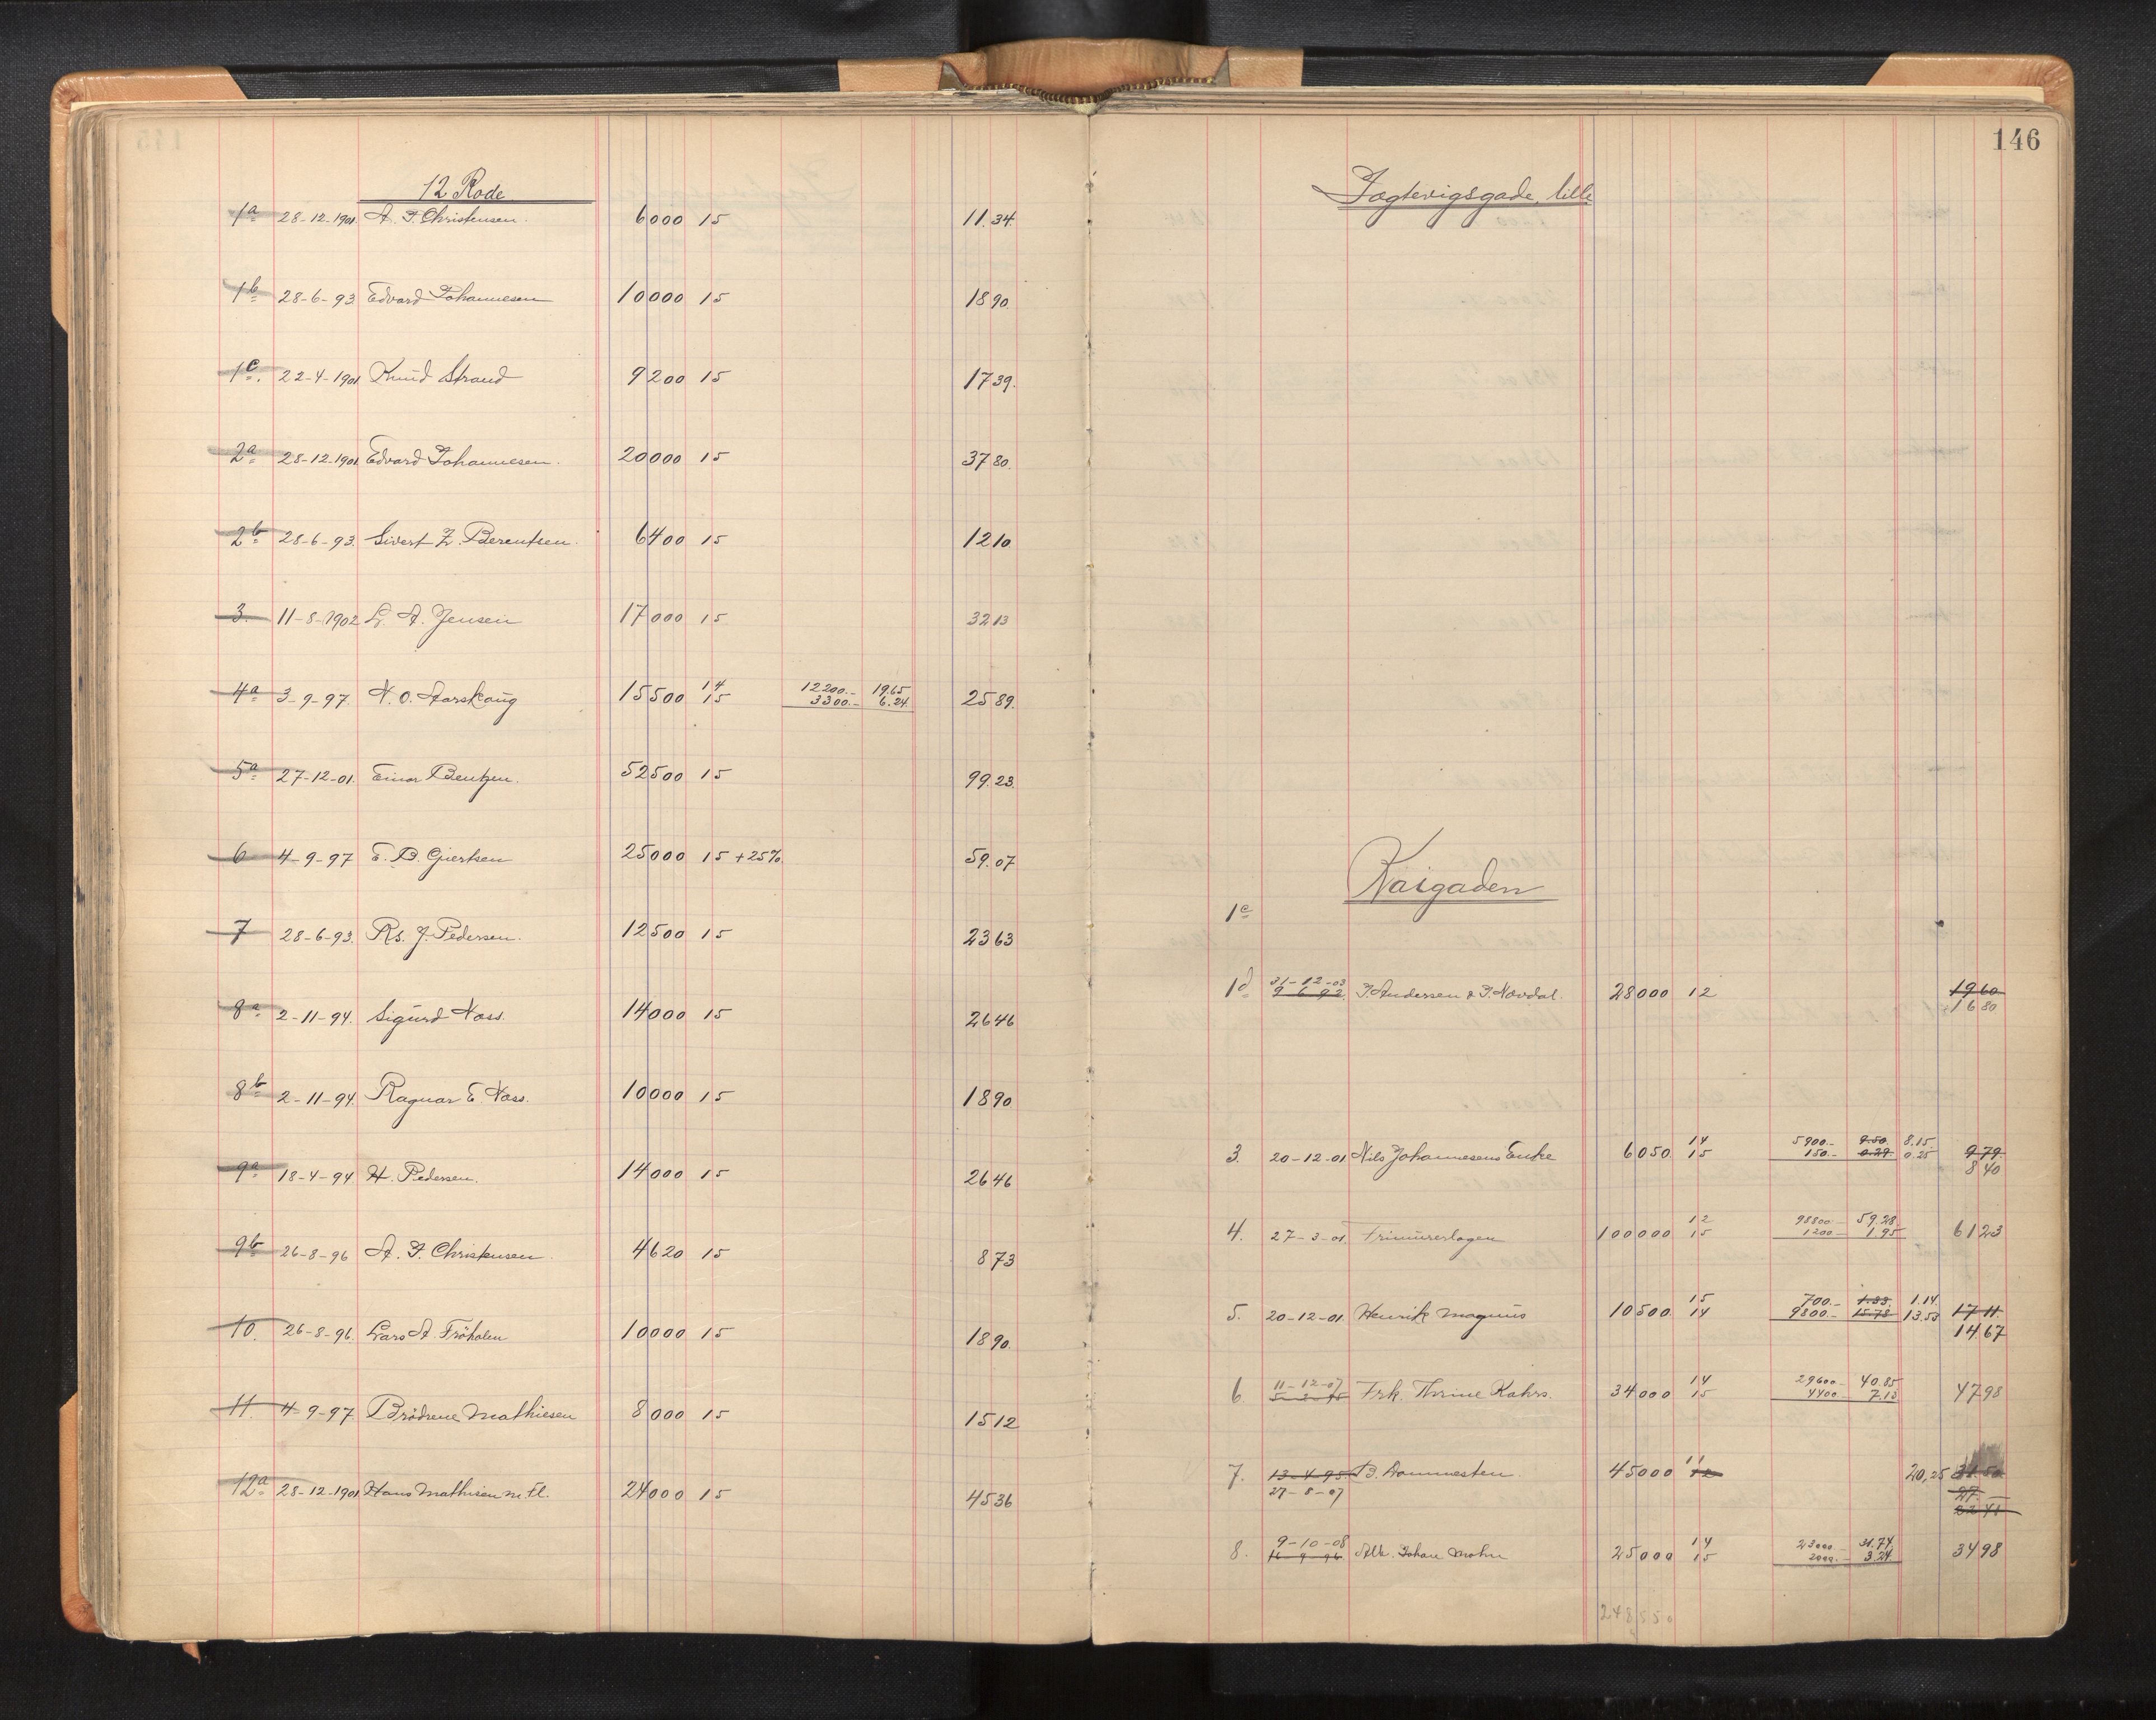 12 Rode
1a 28-12-1901. A. J. Christensen. 6000 15 11.34.
1b 28-6-93. Edvard Johannesen 10000 15 1890.
1c. 22-4-1901. Knud Strand 9200 15 1739.
2a 28-12-1901 Edvard Johannesen. 20000 15 3780.
2b 28-6-93. Sivert Z. Berentsen. 6400 15 1210
3. 11-8-1902 L. A. Jensen 17000 15 3213
4a 3-9-97. N. O. Aarskaug 15500 14 15 12200.- 19.65 2589.
3300.- 6.24.
5a 27-12-01. Einar Bentzen. 52500 15 99.23.
6 4-9-97 E. B. Gjertsen 25000 15 +25% 59.07
7 28-6-93. Rs. J. Pedersen. 12500 15 2363
8a 2-11-94. Sigurd Næss. 14000 15 2646
8b 2-11-94. Ragnar E. Næss. 10000 15 1890
9a 18-4-94 H. Pedersen. 14000 15 2646
9b 26-8-96 A. J. Christensen. 4620 15 873
10. 26-8-96. Lars A. Fröholm 10000 15 1890.
11. 4-9-97 Brödrene Mathiesen 8000 15 1512
12a 28-12-1901 Hans Mathisen m. fl. 24000 15 4536
146
Jægtevigsgade, lille
Kaigaden
1c
1d 31-12-03 28000 12 1960
9 6 93 J. Andersen & J. Nævdal. 1680
3. 20-12-01 Nils Johannesens Enke 6050 14 15 5900.- 9.50. 8.15. 979.
150.- 0.29. 0.25 840
4. 27-3-01 Frimurerlogen 100000 12 15 98800.- 59.28. 6123
1200- 1.95
5. 20-12-01. Henrik Magnus 10500 15 14 700.- 1.33. 1.14. 1711.
9800.- 15.78 13.53 1467
6 11-12-07 Frk. Thrine Kahrs. 34000 14 15 29600- 40.85 4798
4400- 7.13
7. 13-4-95 B. 45000 11 12 20,25 31.50
27-8-07 27.-
22 41
8. 9-10-08 Adv. Johan Mohn 25000 14 15 23000.- 31.74. 3498
2000.- 3.24.
248550